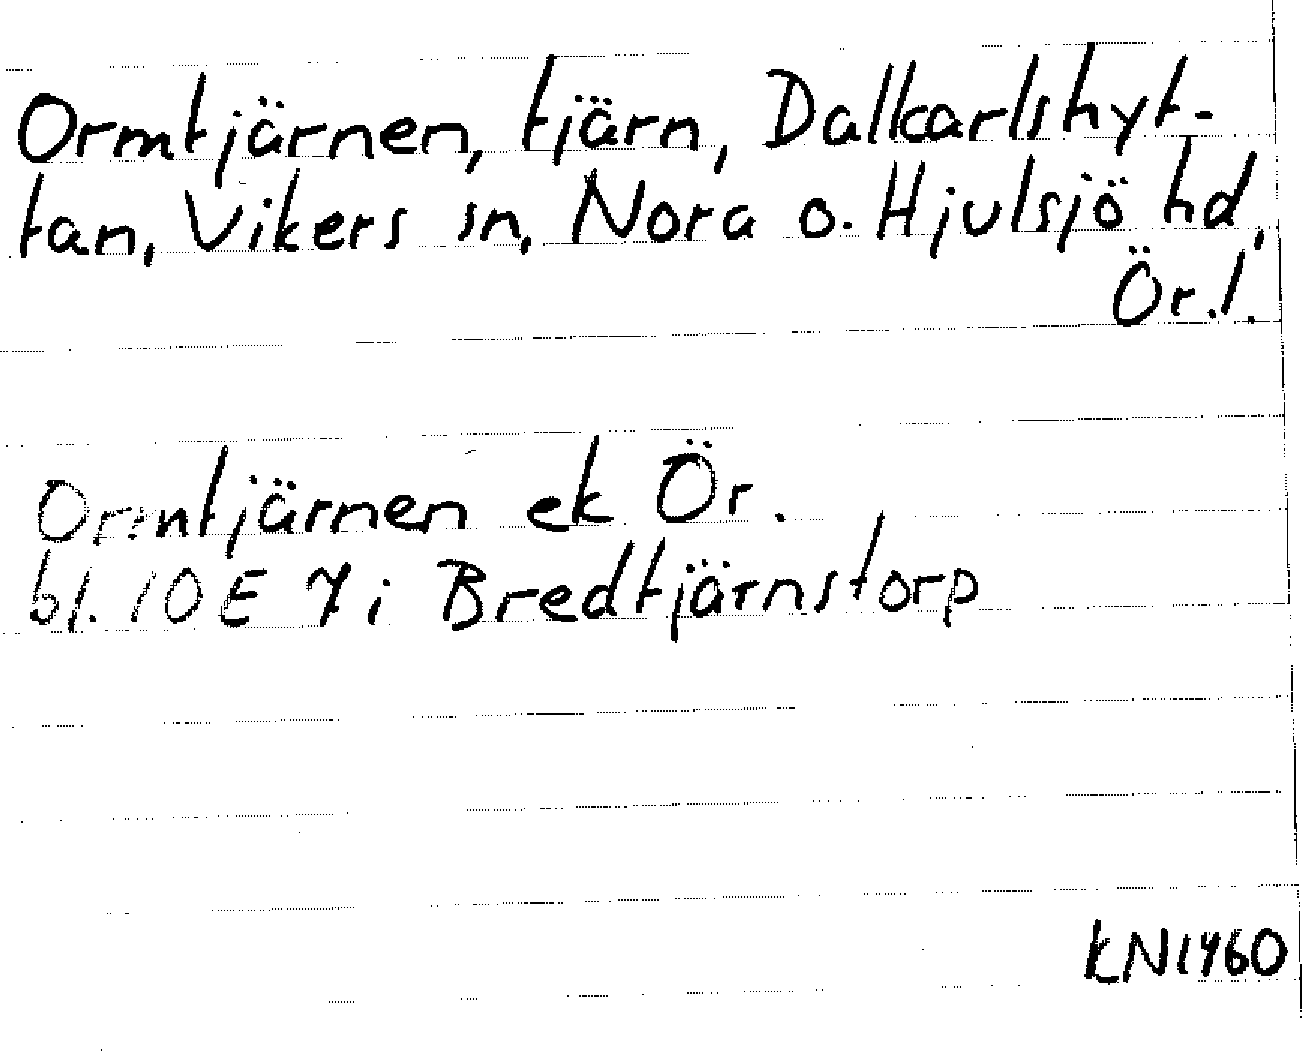 Ormtjärnen, tjärn, Dalkarlshyt-
tan, Vikers sn, Nora o. Hjulsjö hd,
Ör.l.
Ormtjärnen ek Ör.
bl. 10E 7i Bredtjärnstorp
KN1960